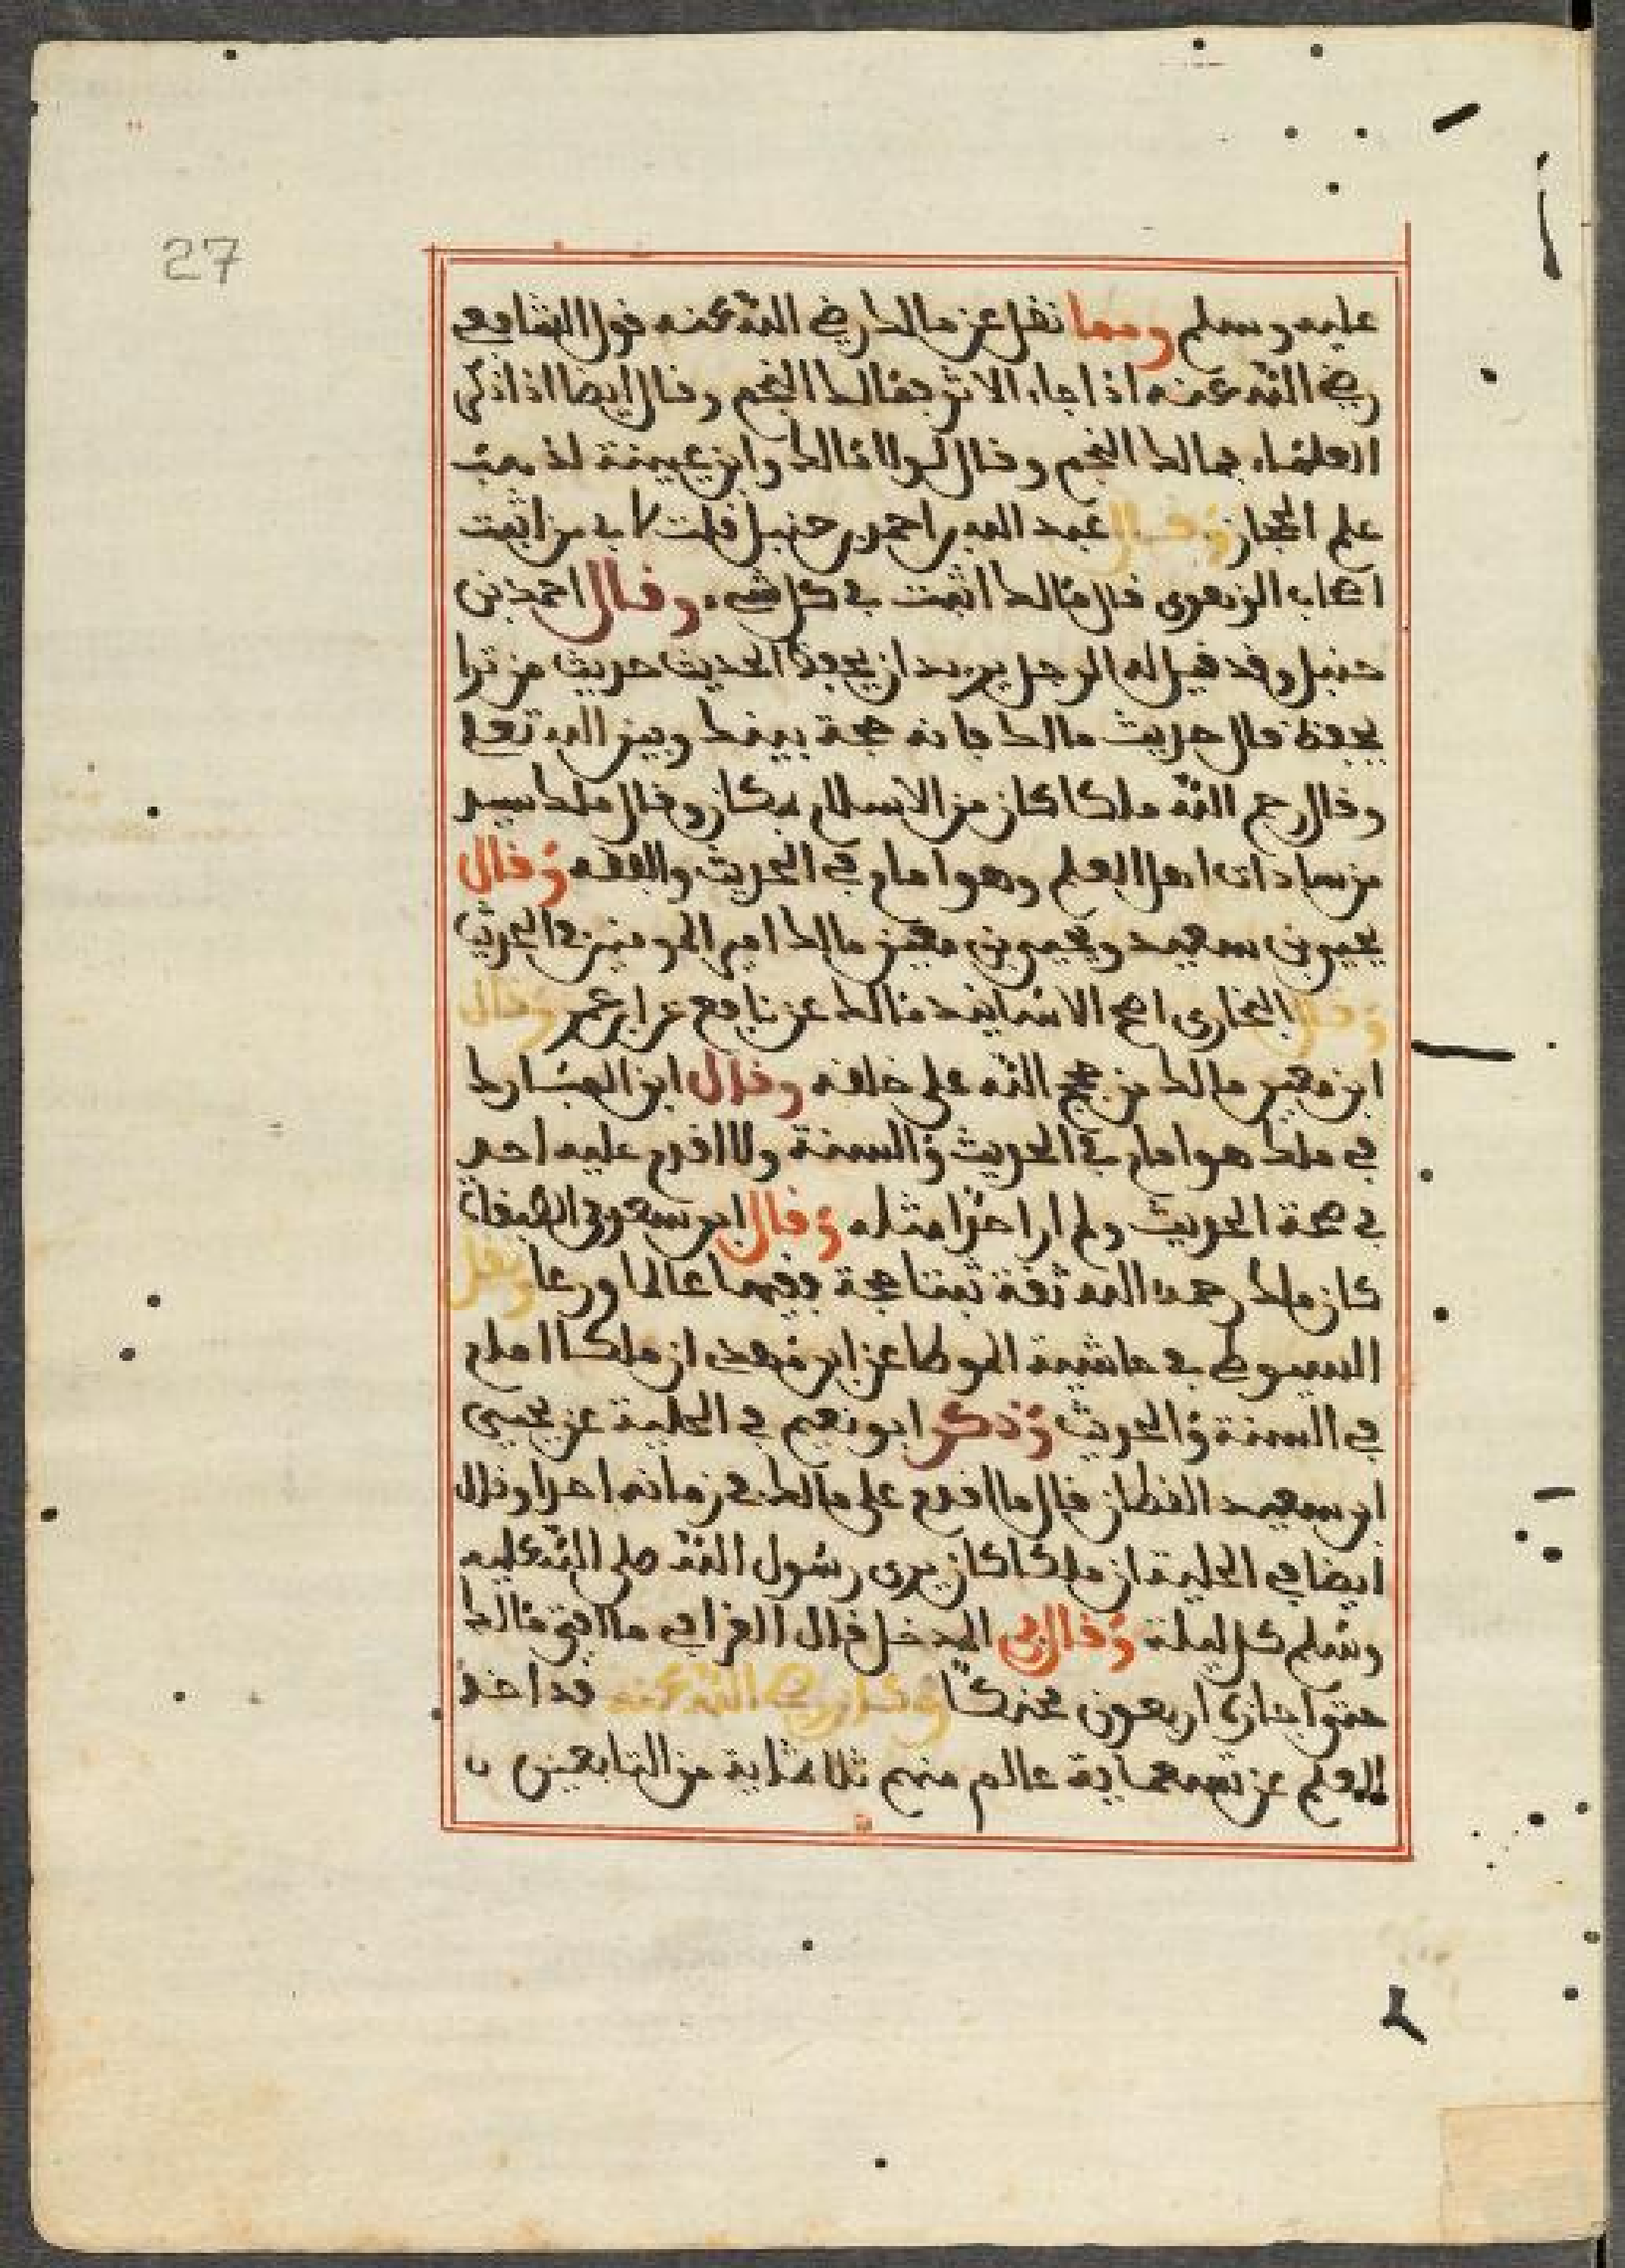 27
عليه وسلم ومما نقل عن مالك رضي الله عنه قول الشافعي
رضي الله عنه اذا جاء الاثر فمالك النجم وقال ايضا اذا ذكر
العلماء فمالك النجم وقال لولا مالك وابن عيينة لذهب
علم الحجاز وقال عبد الله بن احمد بن حنبل قلت لابي من اثبت
اصحاب الزهري قال مالك اثبت في كل شيء وقال احمد بن
حنبل وقد قيل له الرجل يريد ان يحفظ الحديث حديث من ترا
يحفظ قال حديث مالك فانه حجة بينك وبين الله تعلى
وقال رحم الله ملكا كان من الاسلام بمكان وقال ملك سيد
من سادات اهل العلم وهو امام في الحديث والفقه وقال
يحيى بن سعيد ويحيى بن معين مالك امير المومنين في الحديث
وقال البخاري اصح الاسانيد مالك عن نافع عن ابن عمر وقال
ابن معين مالك من حجج الله على خلقه وقال ابن المبارك
في ملك هو امام في الحديث والسنة ولا اقدم عليه احد
في صحة الحديث ولم ار احدا مثله وقال ابن سعد في الطبقات
كان ملك رحمه الله ثقة ثبتا حجة فقيها عالما ورعا ونقل
السيوطي في حاشية الموطا عن ابن مهدي ان ملكا امام
في السنة والحديث وذكر ابو نعيم في الحلية عن يحيى
ابن سعيد القطان قال ما اقدم على مالك في زمانه احدا وقال
ايضا في الحلية ان ملكا كان يرى رسول الله صلى الله عليه
وسلم كل ليلة وقال في المدخل قال القرافي ما افتى مالك
حتى اجازه اربعون محنكا وكان رضي الله عنه قد اخذ
العلم عن تسعماية عالم منهم ثلاثماية من التابعين